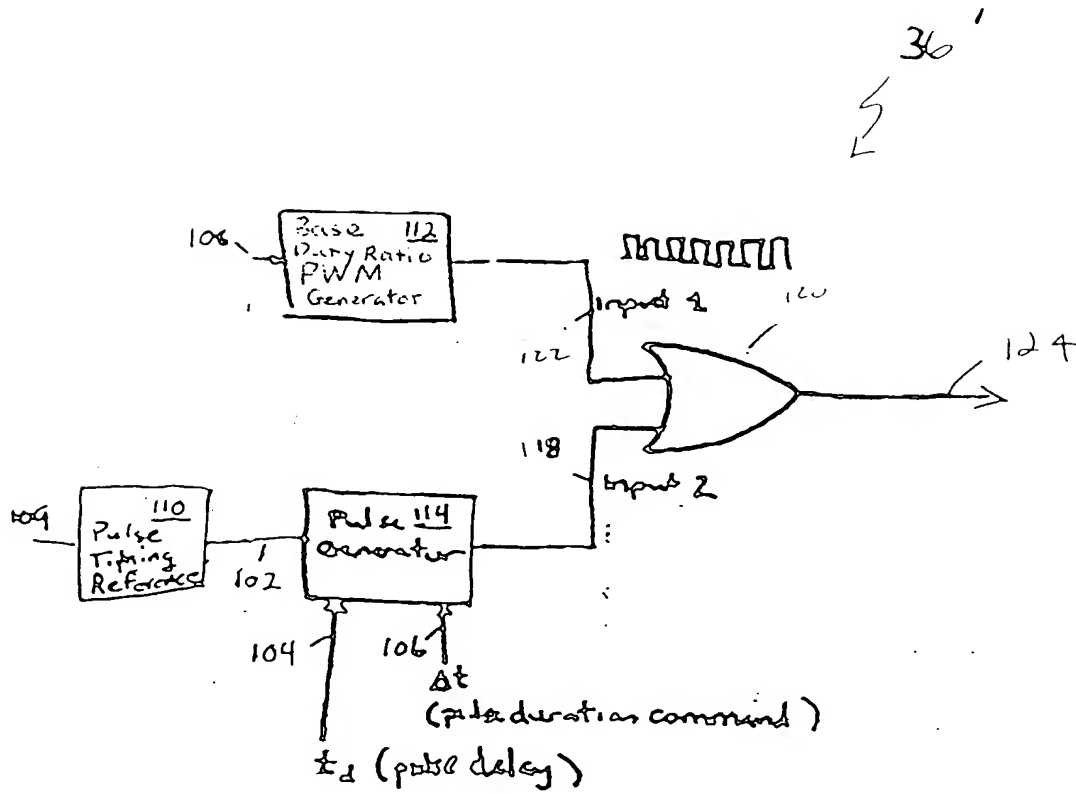 36'
Base 112
Duty Ratio
PWM
Generator
Input 1
122
120
124
118
Input 2
109
110
Pulse
Timing
Reference
102
Pulse 114
Generator
104
106
Δt
(pulse duration command)
t_d (pulse delay)